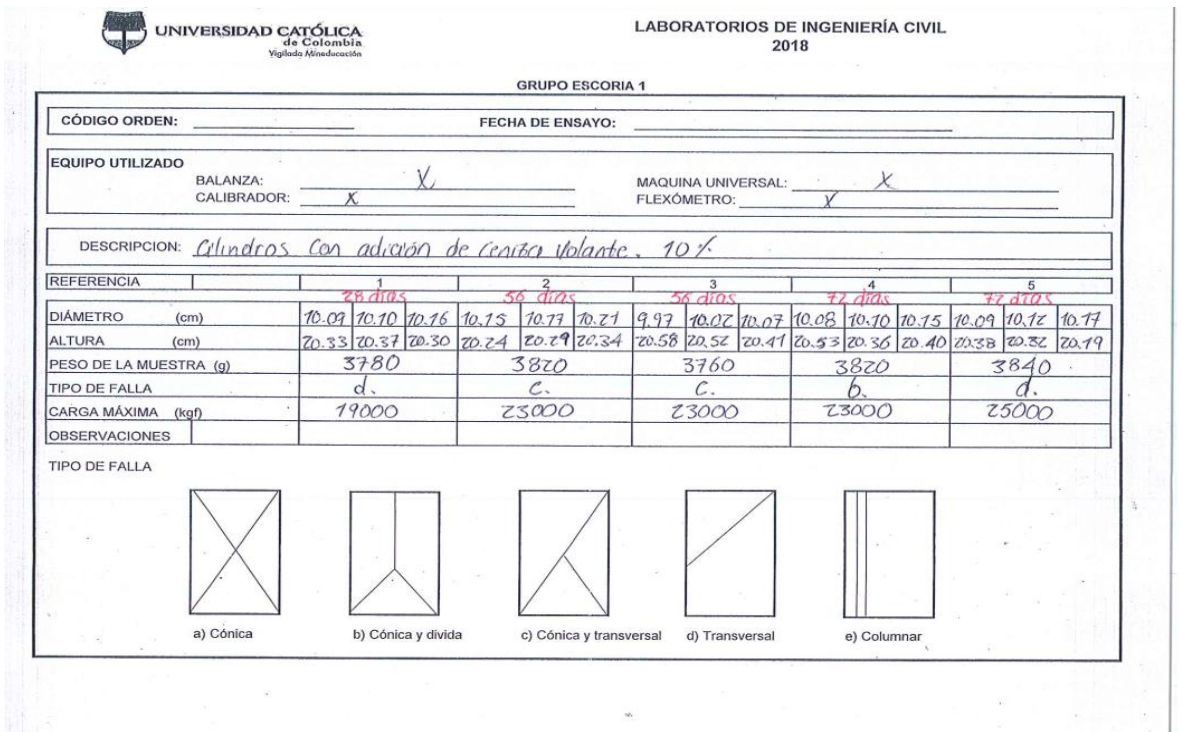 UNIVERSIDAD CATÓLICA
de Colombia
Vigilada Mineducación
LABORATORIOS DE INGENIERÍA CIVIL
2018
GRUPO ESCORIA 1
CÓDIGO ORDEN: FECHA DE ENSAYO:
EQUIPO UTILIZADO
BALANZA: X MAQUINA UNIVERSAL: X
CALIBRADOR: X FLEXÓMETRO: X
DESCRIPCION: Cilindros Con adición de Ceniza Volante. 10%
REFERENCIA 1 2 3 4 5
28 días 56 días 56 días 72 días 72 días
DIÁMETRO (cm) 10.09 10.10 10.16 10.15 10.17 10.21 9.97 10.02 10.07 10.08 10.10 10.15 10.09 10,12 10.17
ALTURA (cm) 20.33 20.37 20.30 20.24 20.29 20.34 20.58 20,52 20.41 20.53 20.36 20.40 20.38 20.32 20.19
PESO DE LA MUESTRA (g) 3780 3820 3760 3820 3840
TIPO DE FALLA d. c. c. b. d.
CARGA MÁXIMA (kgf) 19000 23000 23000 23000 25000
OBSERVACIONES
TIPO DE FALLA
a) Cónica b) Cónica y divida c) Cónica y transversal d) Transversal e) Columnar